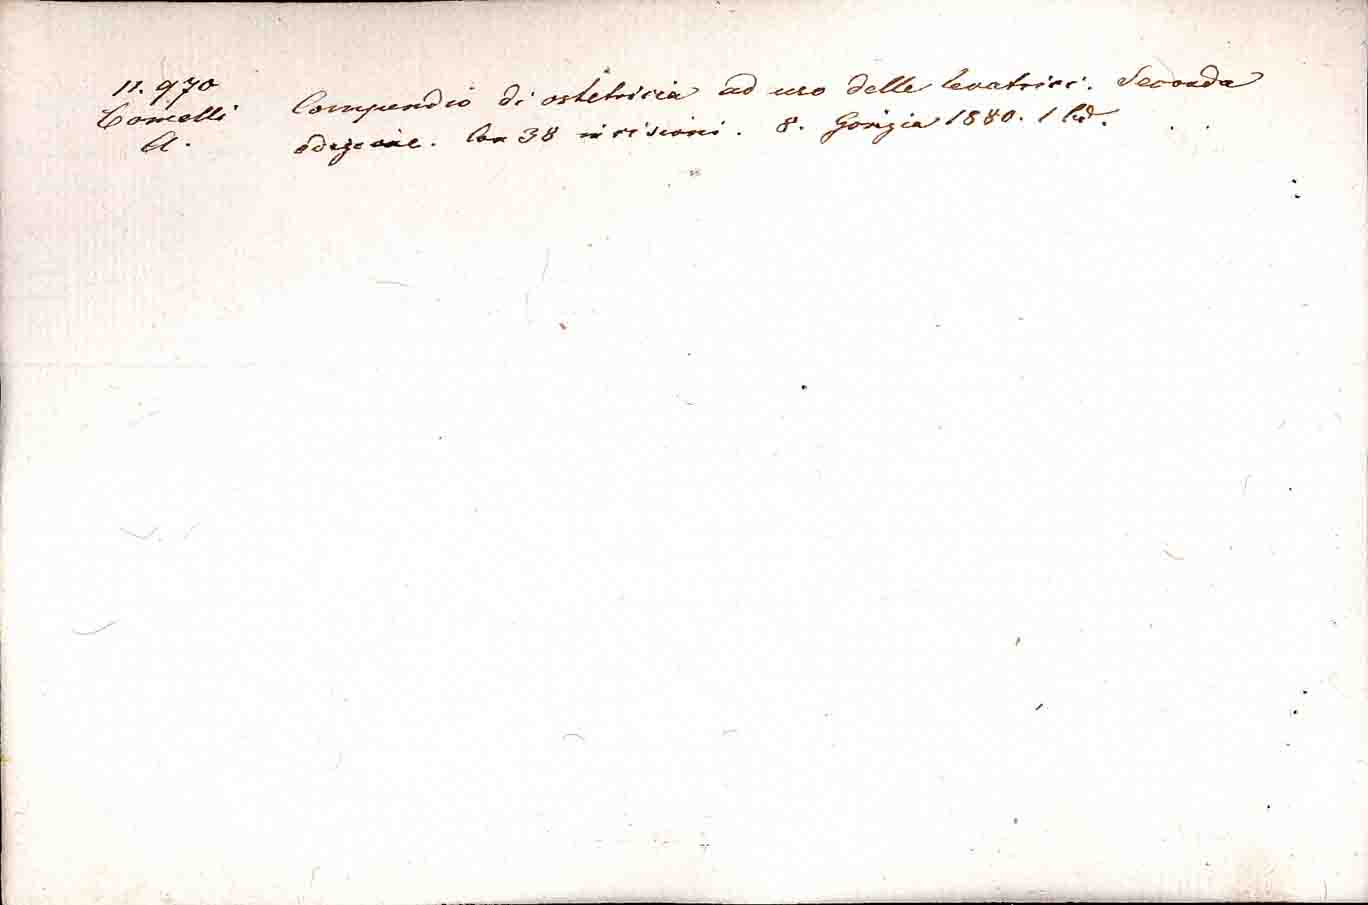 11.970
Comelli A.
Compendio di ostetricia ad uso delle levatrici. Seconda
edizione. Con 38 incisioni. 8. Gorizia 1880. 1 Bd.